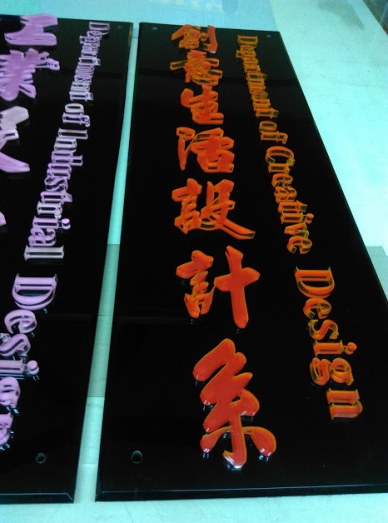 創意生活設計系
Department of Creative Design
Department of Industrial Design